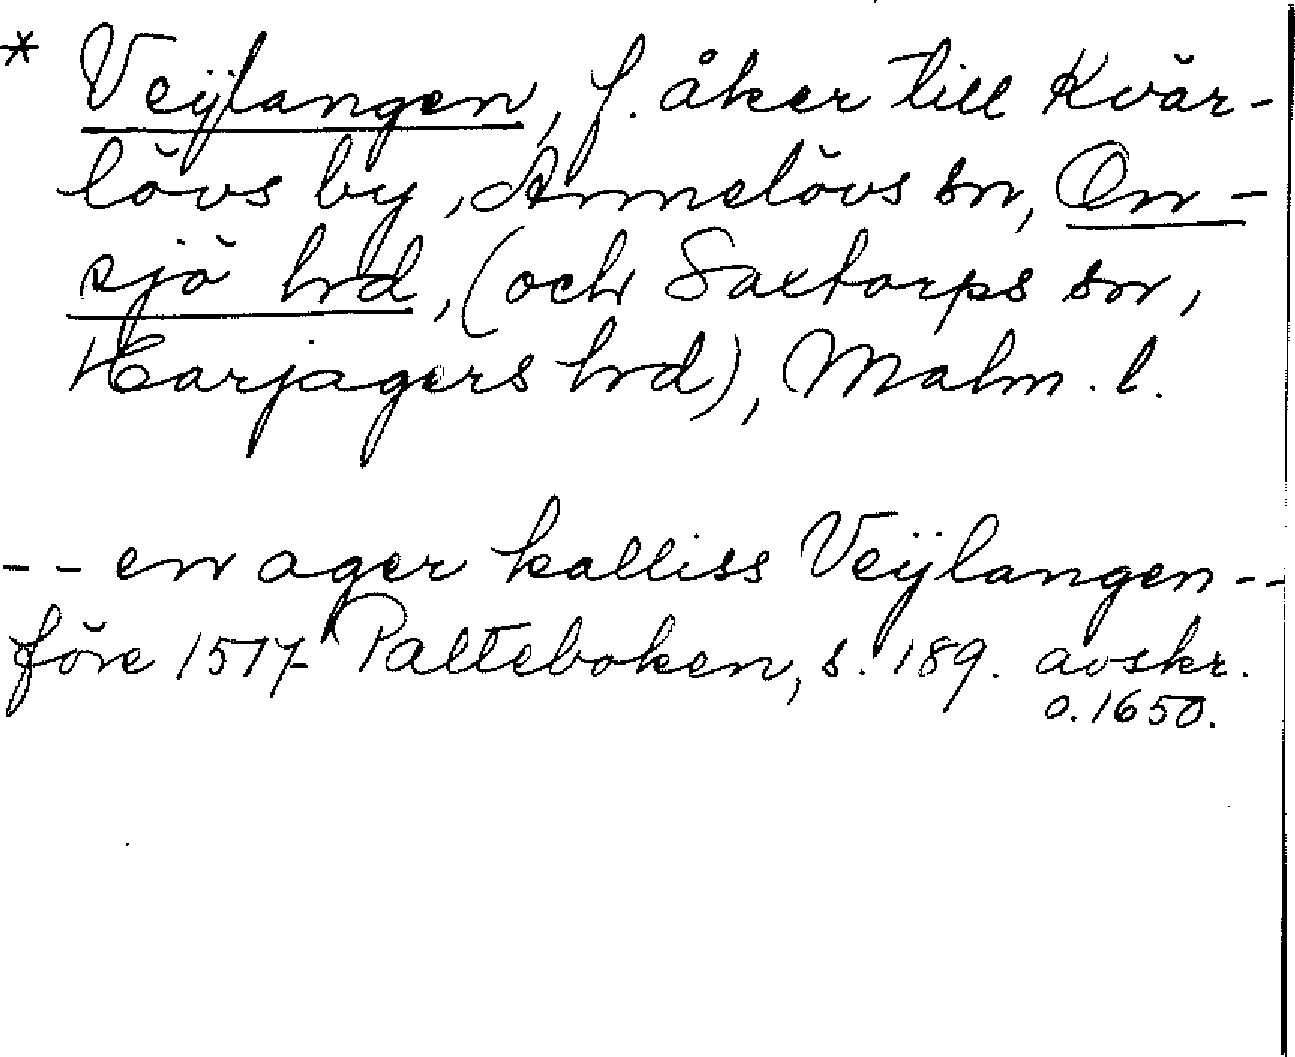 * Veÿlangen, f. åker till Kvär-
lövs by, Annelövs sn, On-
sjö hd, (och Saxtorps sn,
Harjagers hd), Malm. l.
-- en ager kalliss Veÿlangen --
före 1517 Palteboken, s. 189. avskr.
o. 1650.